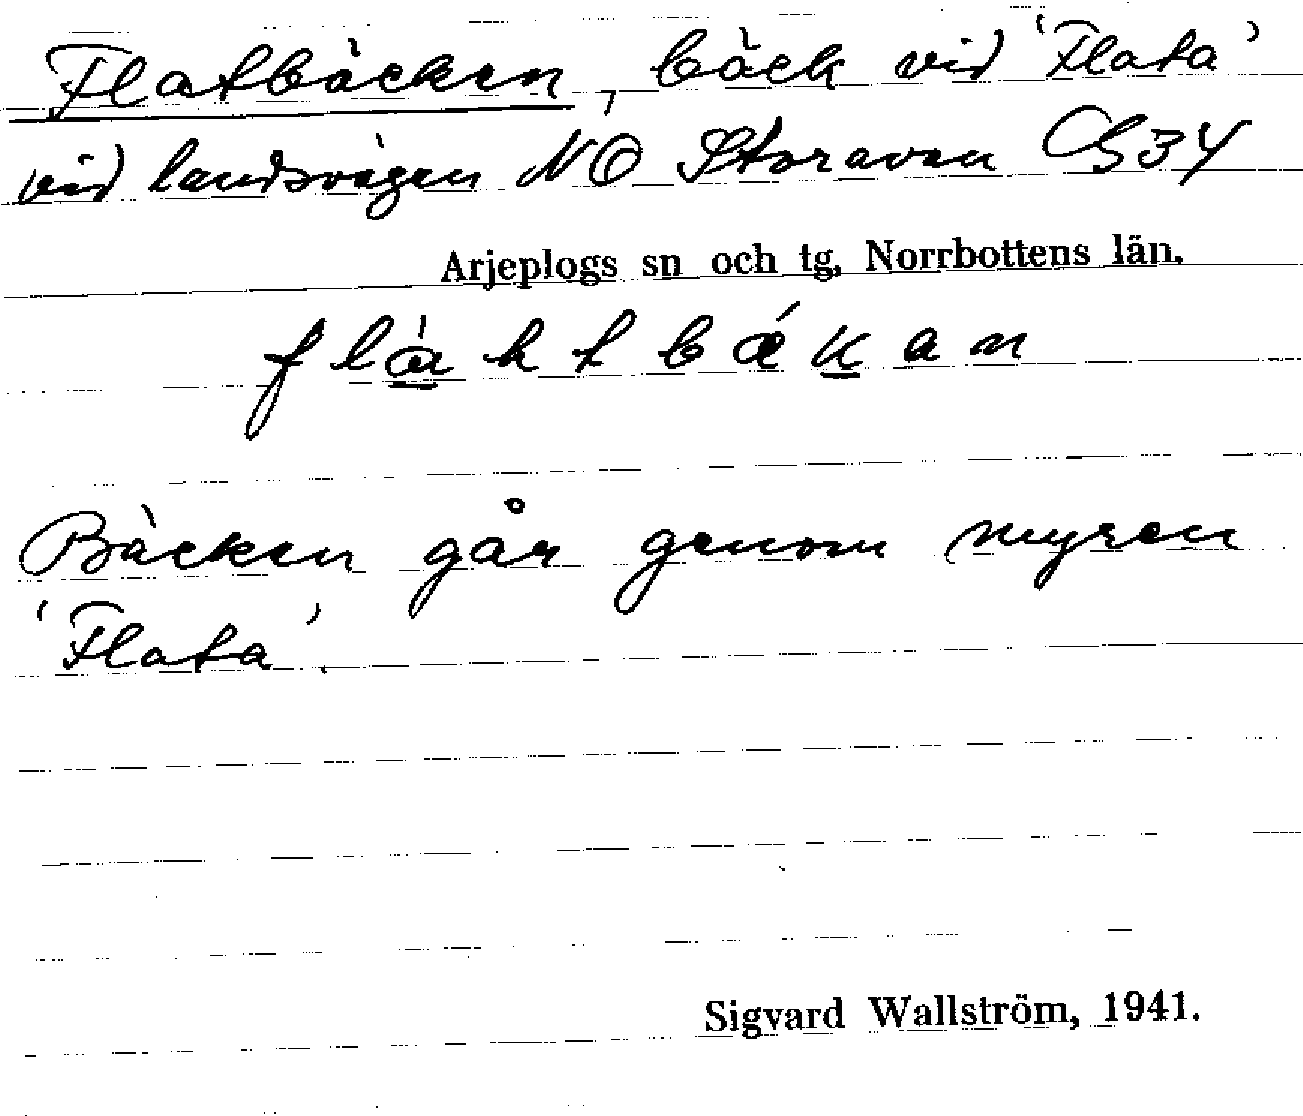 Flatbäcken, bäck vid 'Flata'
vid landsvägen NO Storavan G34
Arjeplogs sn och tg, Norrbottens län.
Bäcken går genom myren
'Flata'.
Sigvard Wallström, 1941.